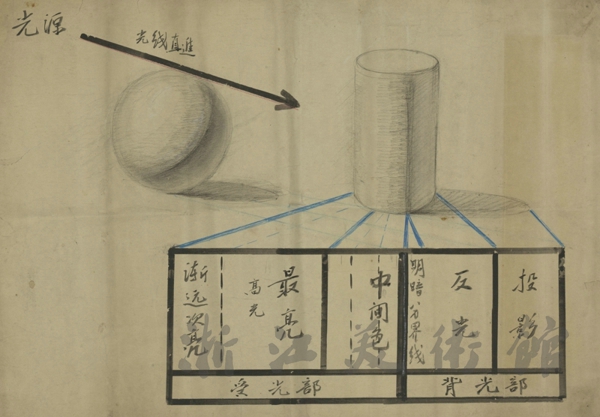 光源
光线直進
渐远次亮
高光
最亮
中间色
明暗分界线
反光
投影
受光部
背光部
浙江美術館